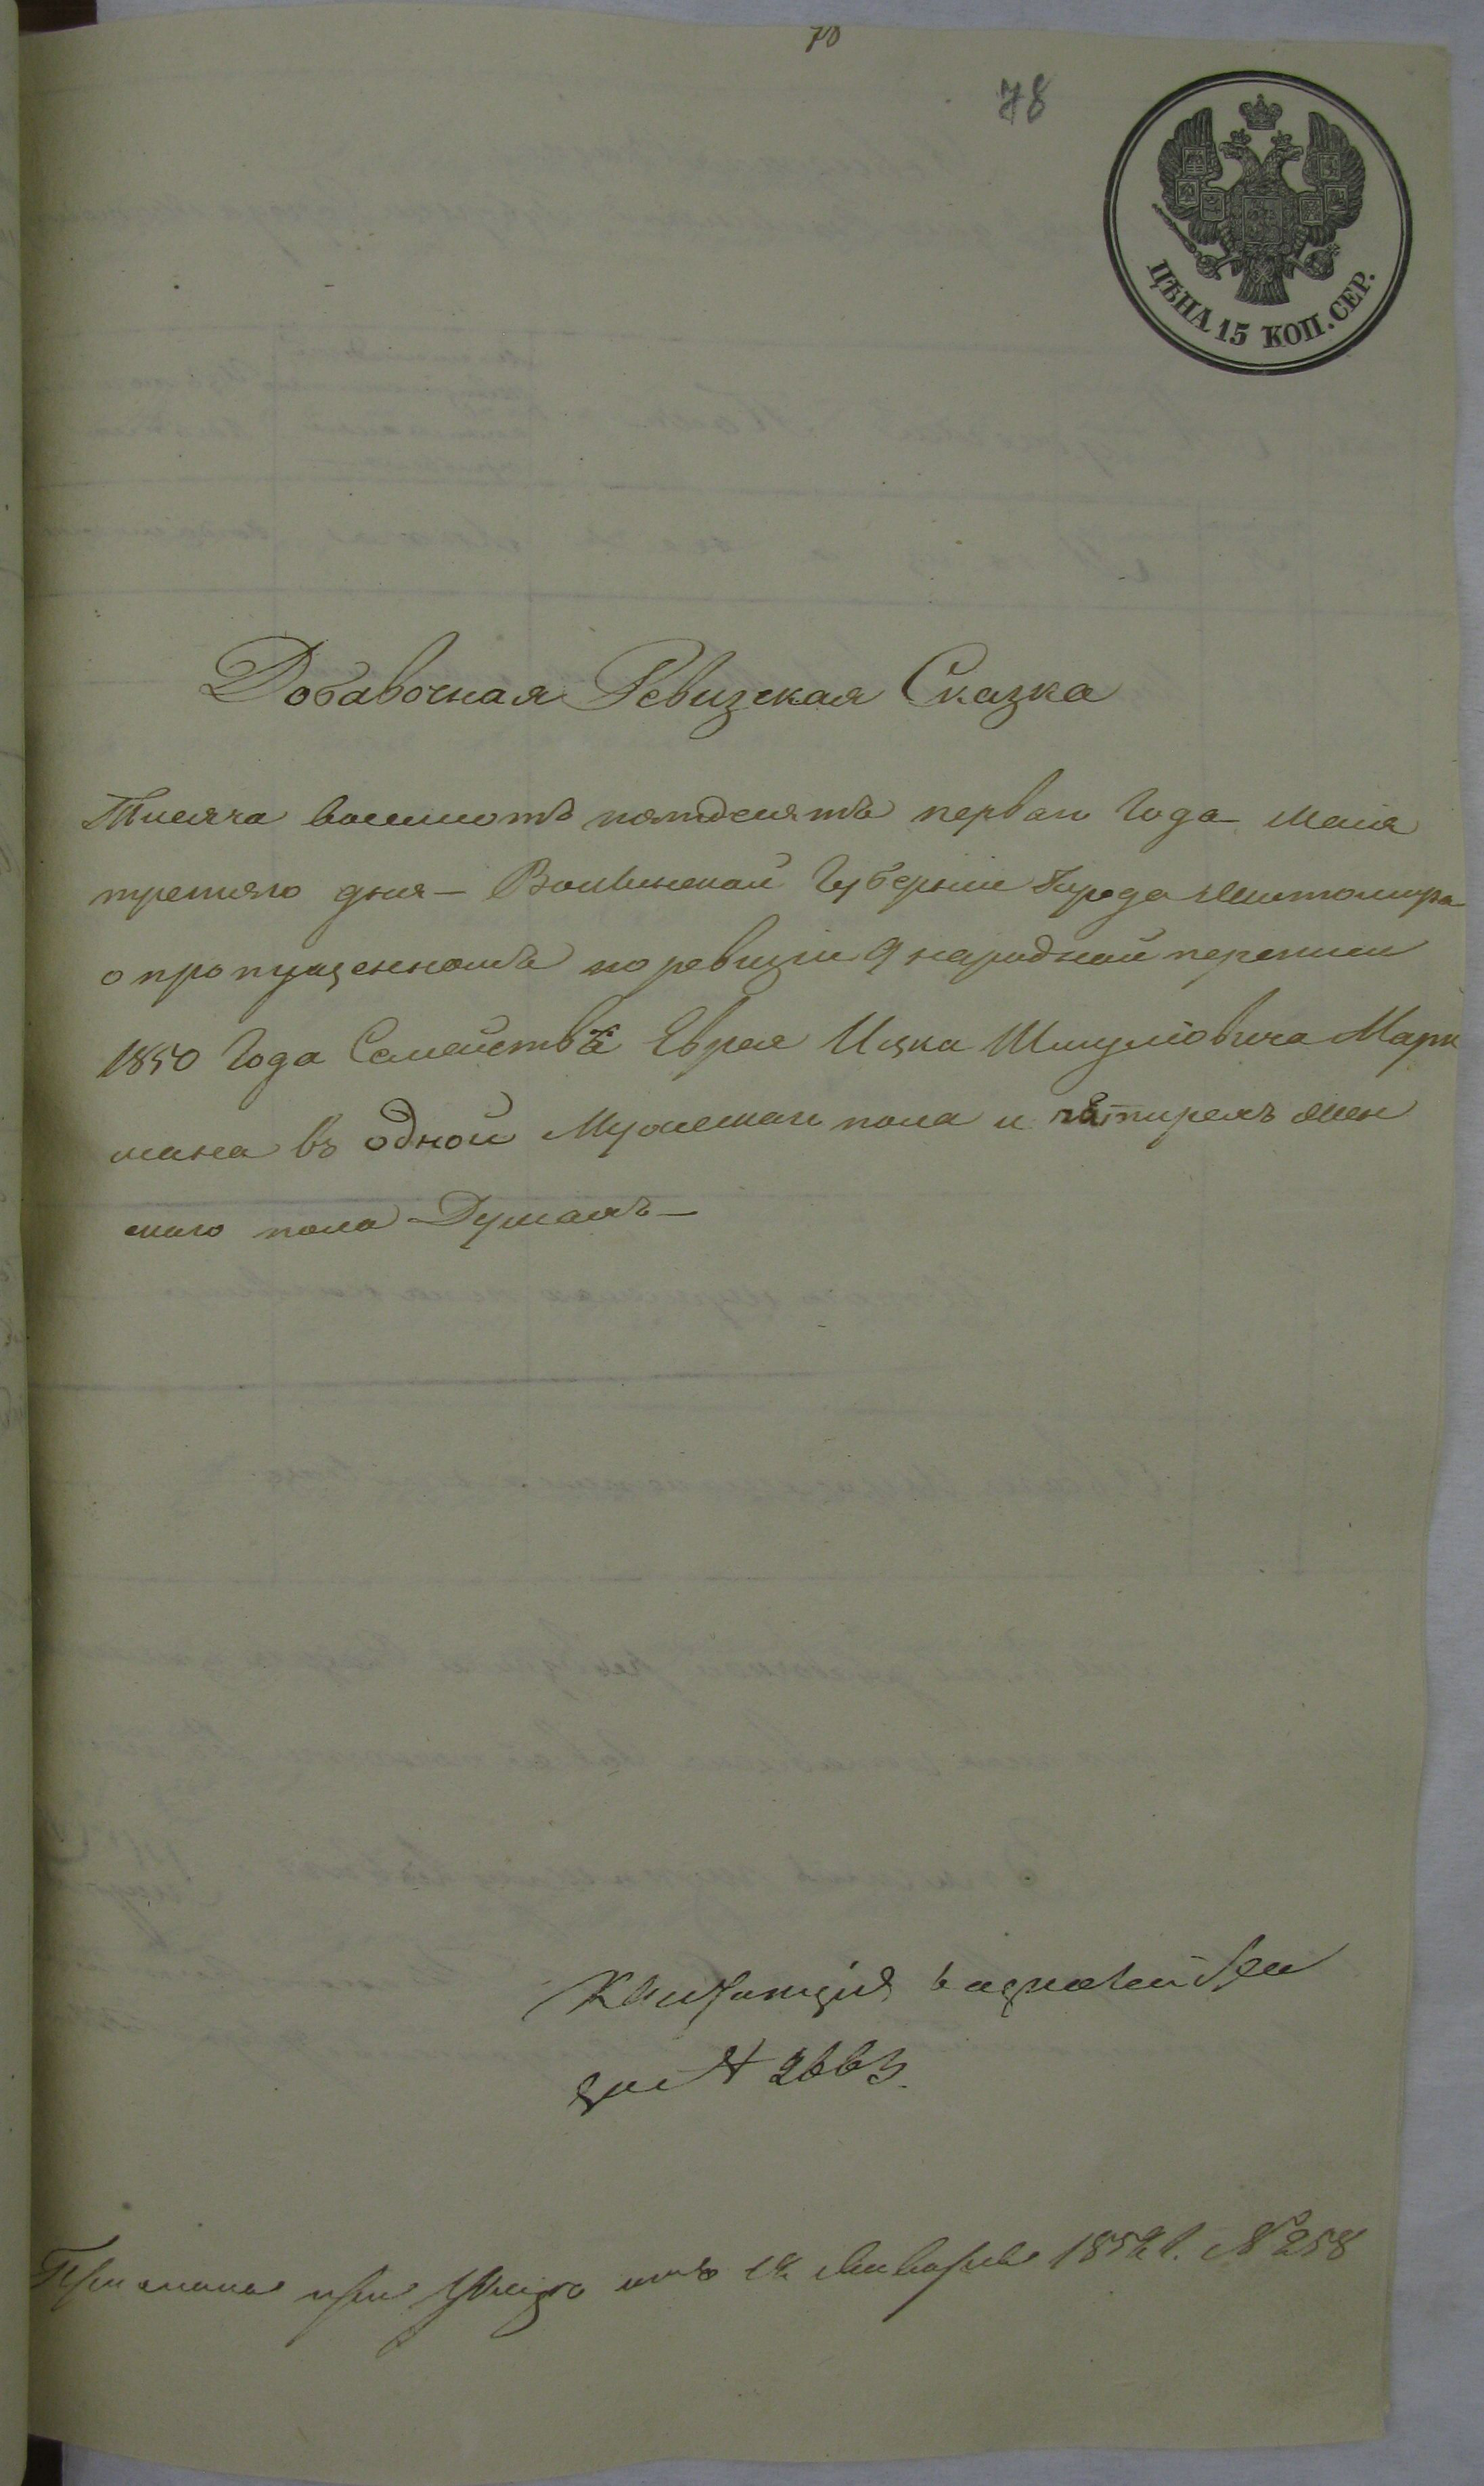 78
78
ЦѢНА 15 КОП. СЕР.
Добавочная Ревизская Сказка
Тисяча восемсотъ пятдесятъ первого Года Маія
третяго дня – Волинской Губерніи Города Житомира
о пропущенномъ по ревизіи 9 народной переписи
1850 Года Семействѣ Еврея Ицка Шмулiовича Марк
мана въ одной Мужескаго пола и четирехъ жен
скаго пола Душахъ –
Квитанция
за № 2663.
Прислана при отъ Января 1852 г. № 258